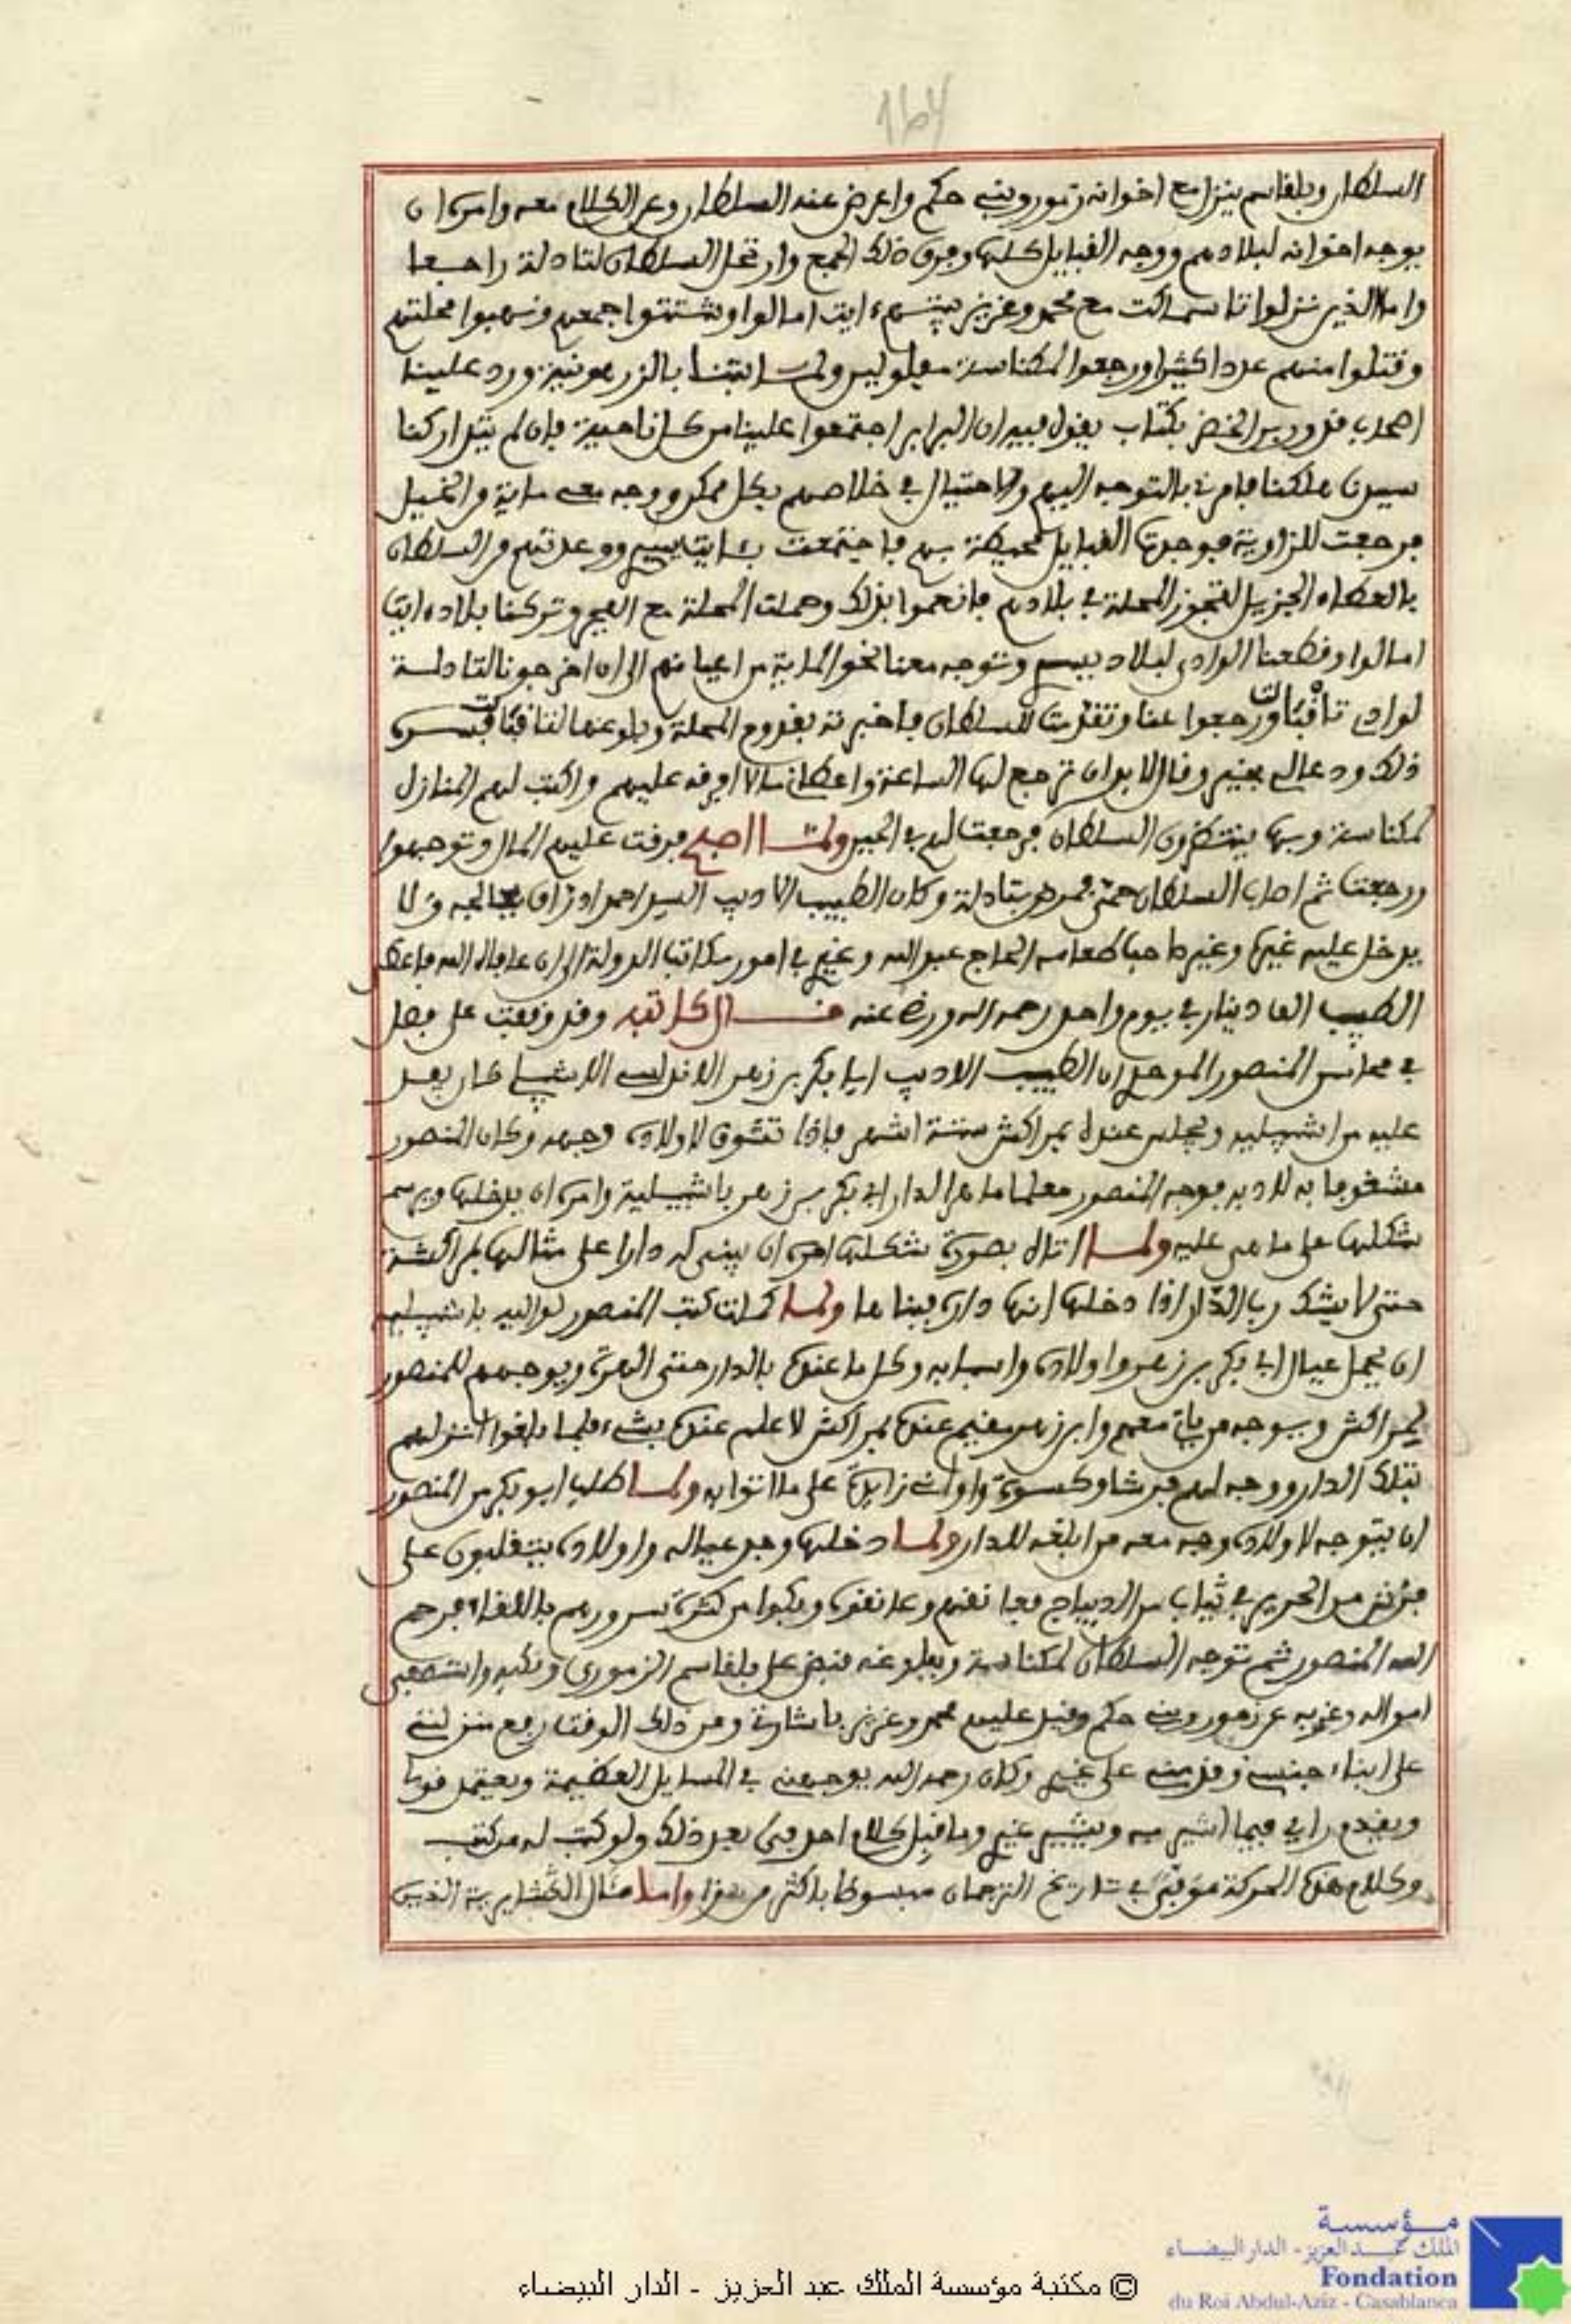 167
السلطان وبلقاسم ينزل مع اخوانه زمور وبني حكم واعرض عنه السلطان وعن الكلام معه وامره ان
يوجه اخوانه لبلادهم ووجه القبايل كلها وفرق ذلك الجمع وارتحل السلطان لتادلة راجعا
واما الذين نزلوا تاسماكت مع محمد وعزيز بيتهم ايت امالوا وشتتوا جمعهم ونهبوا محلتهم
وقتلوا منهم عددا كثيرا ورجعوا لمكناسة مفلولين ولما بتنا بالزرهونيين ورد علينا
اصحاب قدور بن الخضر بكتاب يقول فيه ان البرابر اجتمعوا علينا من كل ناحية فان لم يتداركنا
سيدنا هلكنا فامرني بالتوجه اليهم والاحتيال في خلاصهم بكل ممكن ووجه معي ماية من الخيل
فرجعت للزاوية فوجدت القبايل محيطة بهم فاجتمعت بئايت يسي ووعدتهم من السلطان
بالعطاء الجزيل لتجوز المحلة في بلادهم فانعموا بذلك وحملت المحلة مع الفجر وتركنا بلاد ايت
امالوا وقطعنا الوادي لبلاد يسي وتوجه معنا نحو الماية من اعيانهم الى ان اخرجونا لتادلة
لوادي تاقبالت ورجعوا عنا وتقدمت للسلطان فاخبرته بقدوم المحلة وبلوغها لتاقبالت فسره
ذلك ودعا لي بخير وقال لابد ان ترجع لها الساعة واعطاني مالا افرقه عليهم واكتب لهم المنازل
لمكناسة وبها ينتظرون السلطان فرجعت لهم في الحين ولما اصبح فرقت عليهم المال وتوجهوا
ورجعت ثم اصاب السلطان حمى فمرض بتادلة وكان الطبيب الاديب السيد احمد ادراق يعالجه ولا
يدخل عليه غيره وغير صاحب طعامه الحاج عبد الله وغيري في امور مكاتب الدولة الى ان عافاه الله فاعطى
الطبيب الف دينار في يوم واحد رحمه الله ورضي عنه قال كاتبه وقد وقفت على فصل
في محاسن المنصور الموحدي ان الطبيب الاديب ابا بكر بن زهر الاندلسي الاشبيلي كان يفد
عليه من اشبيلية ويجلس عنده بمراكش ستة اشهر فاذا تشوق لاولاده وجهه وكان المنصور
مشغوفا به لادبه فوجه المنصور معلما ماهرا لدار ابي بكر بن زهر باشبيلية وامره ان يدخلها ويرسم
شكلها على ما هي عليه ولما اتاه بصورة شكلها امره ان يبني له دارا على مثالها بمراكشة
حتى لا يشك رب الدار اذا دخلها انها داره ببنائها ولما كملت كتب المنصور لواليه باشبيلية
ان يحمل عيال ابي بكر بن زهر واولاده واسبابه وكل ما عنده بالدار حتى الهرة ويوجههم للمنصور
لمراكش ويوجه من يات معهم وابن زهر مقيم عنده بمراكش لا علم عنده بشيء فلما بلغوا انزلهم
بتلك الدار ووجه لهم فرشا وكسوة واواني زايدة على ما اتوا به ولما طلب ابو بكر من المنصور
ان يتوجه لاولاده وجه معه من ابلغه للدار ولما دخلها وجد عياله واولاده يتقلبون على
فرش من الحرير في ثياب من الديباج فعانقهم وعانقوه وبكوا من كثرة سرورهم باللقاء فرحم
الله المنصور ثم توجه السلطان لمكناسة وببلوغه قبض على بلقاسم الزموري ونكبه واستصفى
امواله وغربه عن زمور وبني حكم وقبل عليهم محمد وعزيز باشارتي ومن ذلك الوقت رفع منزلتي
على ابناء جنسي وقدمني على غيري وكان رحمه الله يوجهني في المسايل العظيمة ويعتمد قولي
ويقدم رايي فيما اشير به ويشير غيري وما قبل كلام احد في بعد ذلك ولو كتب له من كتب
وكلام هذه الحركة موفى في تاريخ الترجمان مبسوطا باكثر من هذا واما مثال الكشايرية الذين
مؤسسة
الملك عبد العزيز - الدار البيضاء
Fondation
du Roi Abdul-Aziz - Casablanca
© مكتبة مؤسسة الملك عبد العزيز - الدار البيضاء